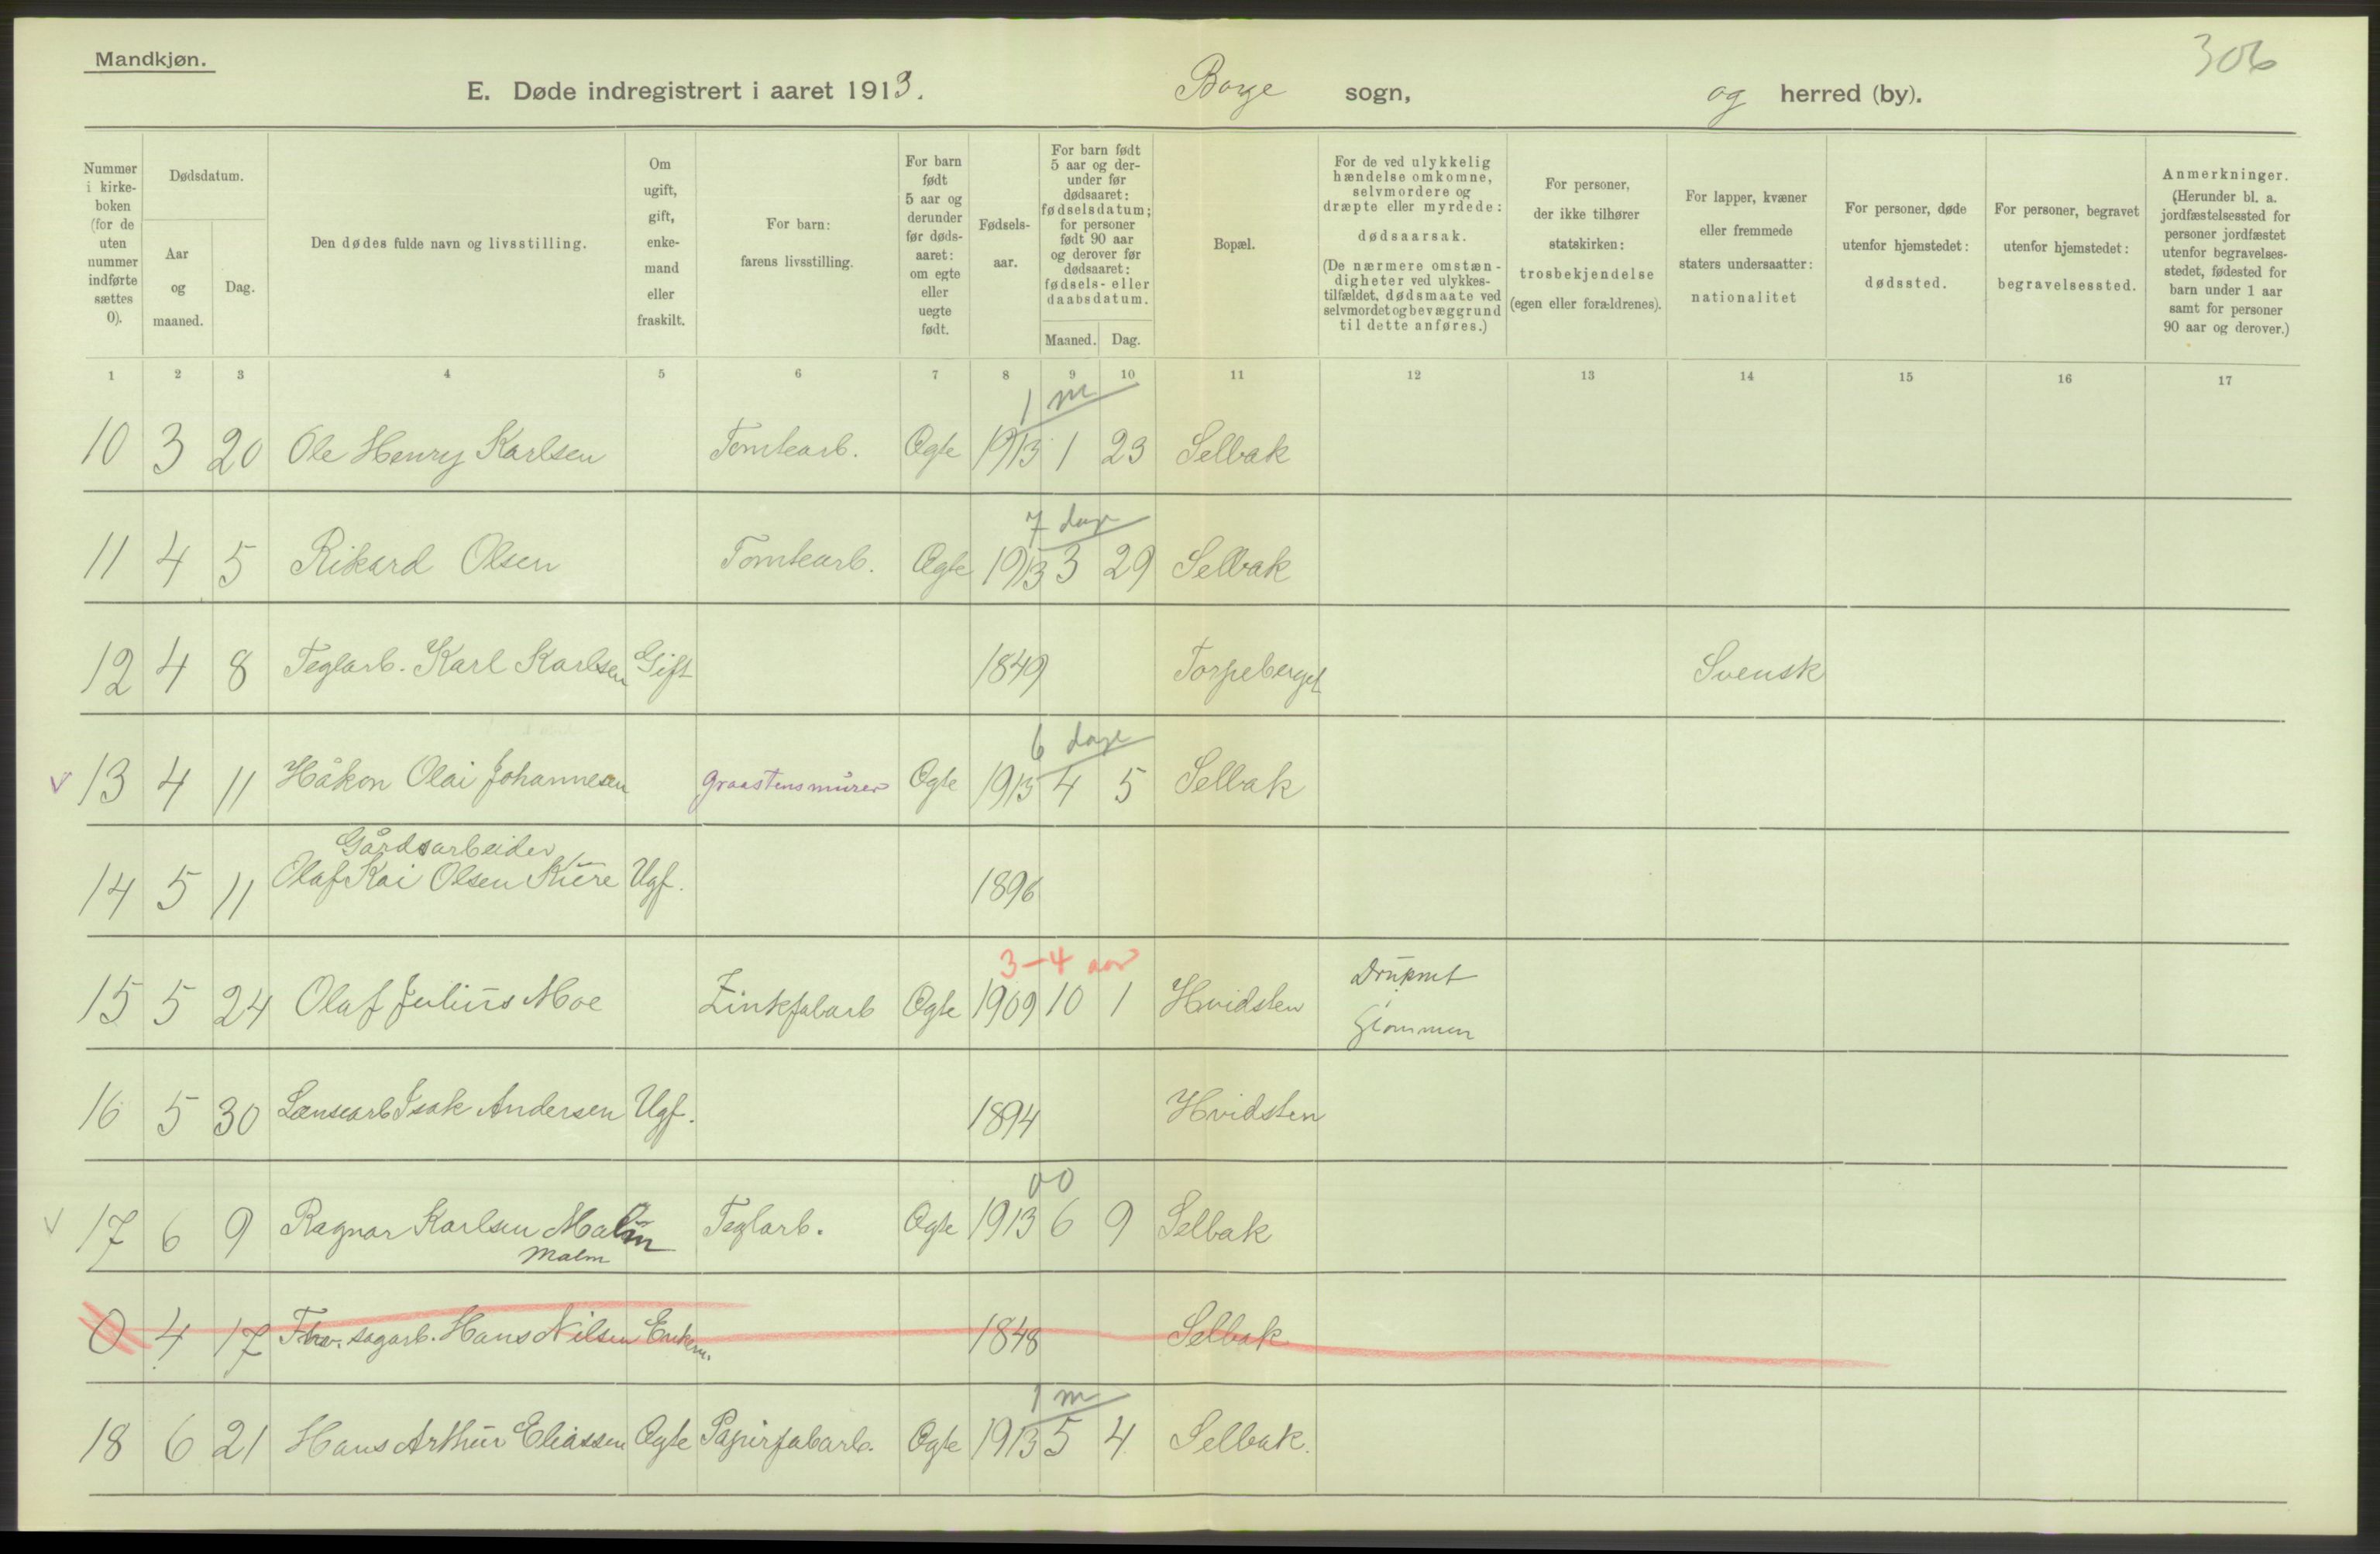 Mandkjøn.
306
E. Døde indregistrert i aaret 1913. Borge sogn, og herred (by).
Nummer i kirke-boken (for de uten nummer indførte sættes 0).
Dødsdatum.
Aar og maaned.
Dag.
Den dødes fulde navn og livsstilling.
Om ugift, gift, enke-mand eller fraskilt.
For barn: farens livsstilling.
For barn født 5 aar og derunder før døds-aaret: om egte eller uegte født.
Fødsels-aar.
For barn født 5 aar og der-under før dødsaaret: fødselsdatum; for personer født 90 aar og derover før dødsaaret: fødsels- eller daabsdatum.
Maaned. Dag.
Bopæl.
For de ved ulykkelig hændelse omkomne, selvmordere og dræpte eller myrdede: dødsaarsak. (De nærmere omstæn-digheter ved ulykkes-tilfældet, dødsmaate ved selvmordet og bevæggrund til dette anføres.)
For personer, der ikke tilhører statskirken: trosbekjendelse (egen eller forældrenes).
For lapper, kvæner eller fremmede staters undersaatter: nationalitet
For personer, døde utenfor hjemstedet: dødssted.
For personer, begravet utenfor hjemstedet: begravelsessted.
Anmerkninger. (Herunder bl. a. jordfæstelsessted for personer jordfæstet utenfor begravelses-stedet, fødested for barn under 1 aar samt for personer 90 aar og derover.)
1 2 3 4 5 6 7 8 9 10 11 12 13 14 15 16 17
1 m
10 3 20 Ole Henry Karlsen Tomtearb. Ogte 1913 1 23 Selbak
7 dage
11 4 5 Rikard Olsen Tomtearb. Ægte 1913 3 29 Selbak
12 4 8 Teglarb. Karl Karlsen Gift 1849 Torpeberget Svensk
6 dage
v 13 4 11 Håkon Olai Johannesen Graastensmürer Ogte 1913 4 5 Selbak
Gårdsarbeider
14 5 11 Olaf Kai Olsen Ugf. 1896
3-4 aar
15 5 24 Olaf Julius Moe Zinkfabarb Ogte 1909 10 1 Hvidsten Druknet i
Glommen
16 5 30 Lænsearb Isak Andersen Ugf. 1894 Hvidsten
00
v 17 6 9 Ragnar Karlsen Malm Teglarb. Ogte 1913 6 9 Selbak
Malm
0 4 17 Fhv. sagarb. Hans Nilsen Enkem. 1848 Selbak
1 m
18 6 21 Hans Arthur Eliassen Ogte Papirfabarb. Ogte 1913 5 4 Selbak.